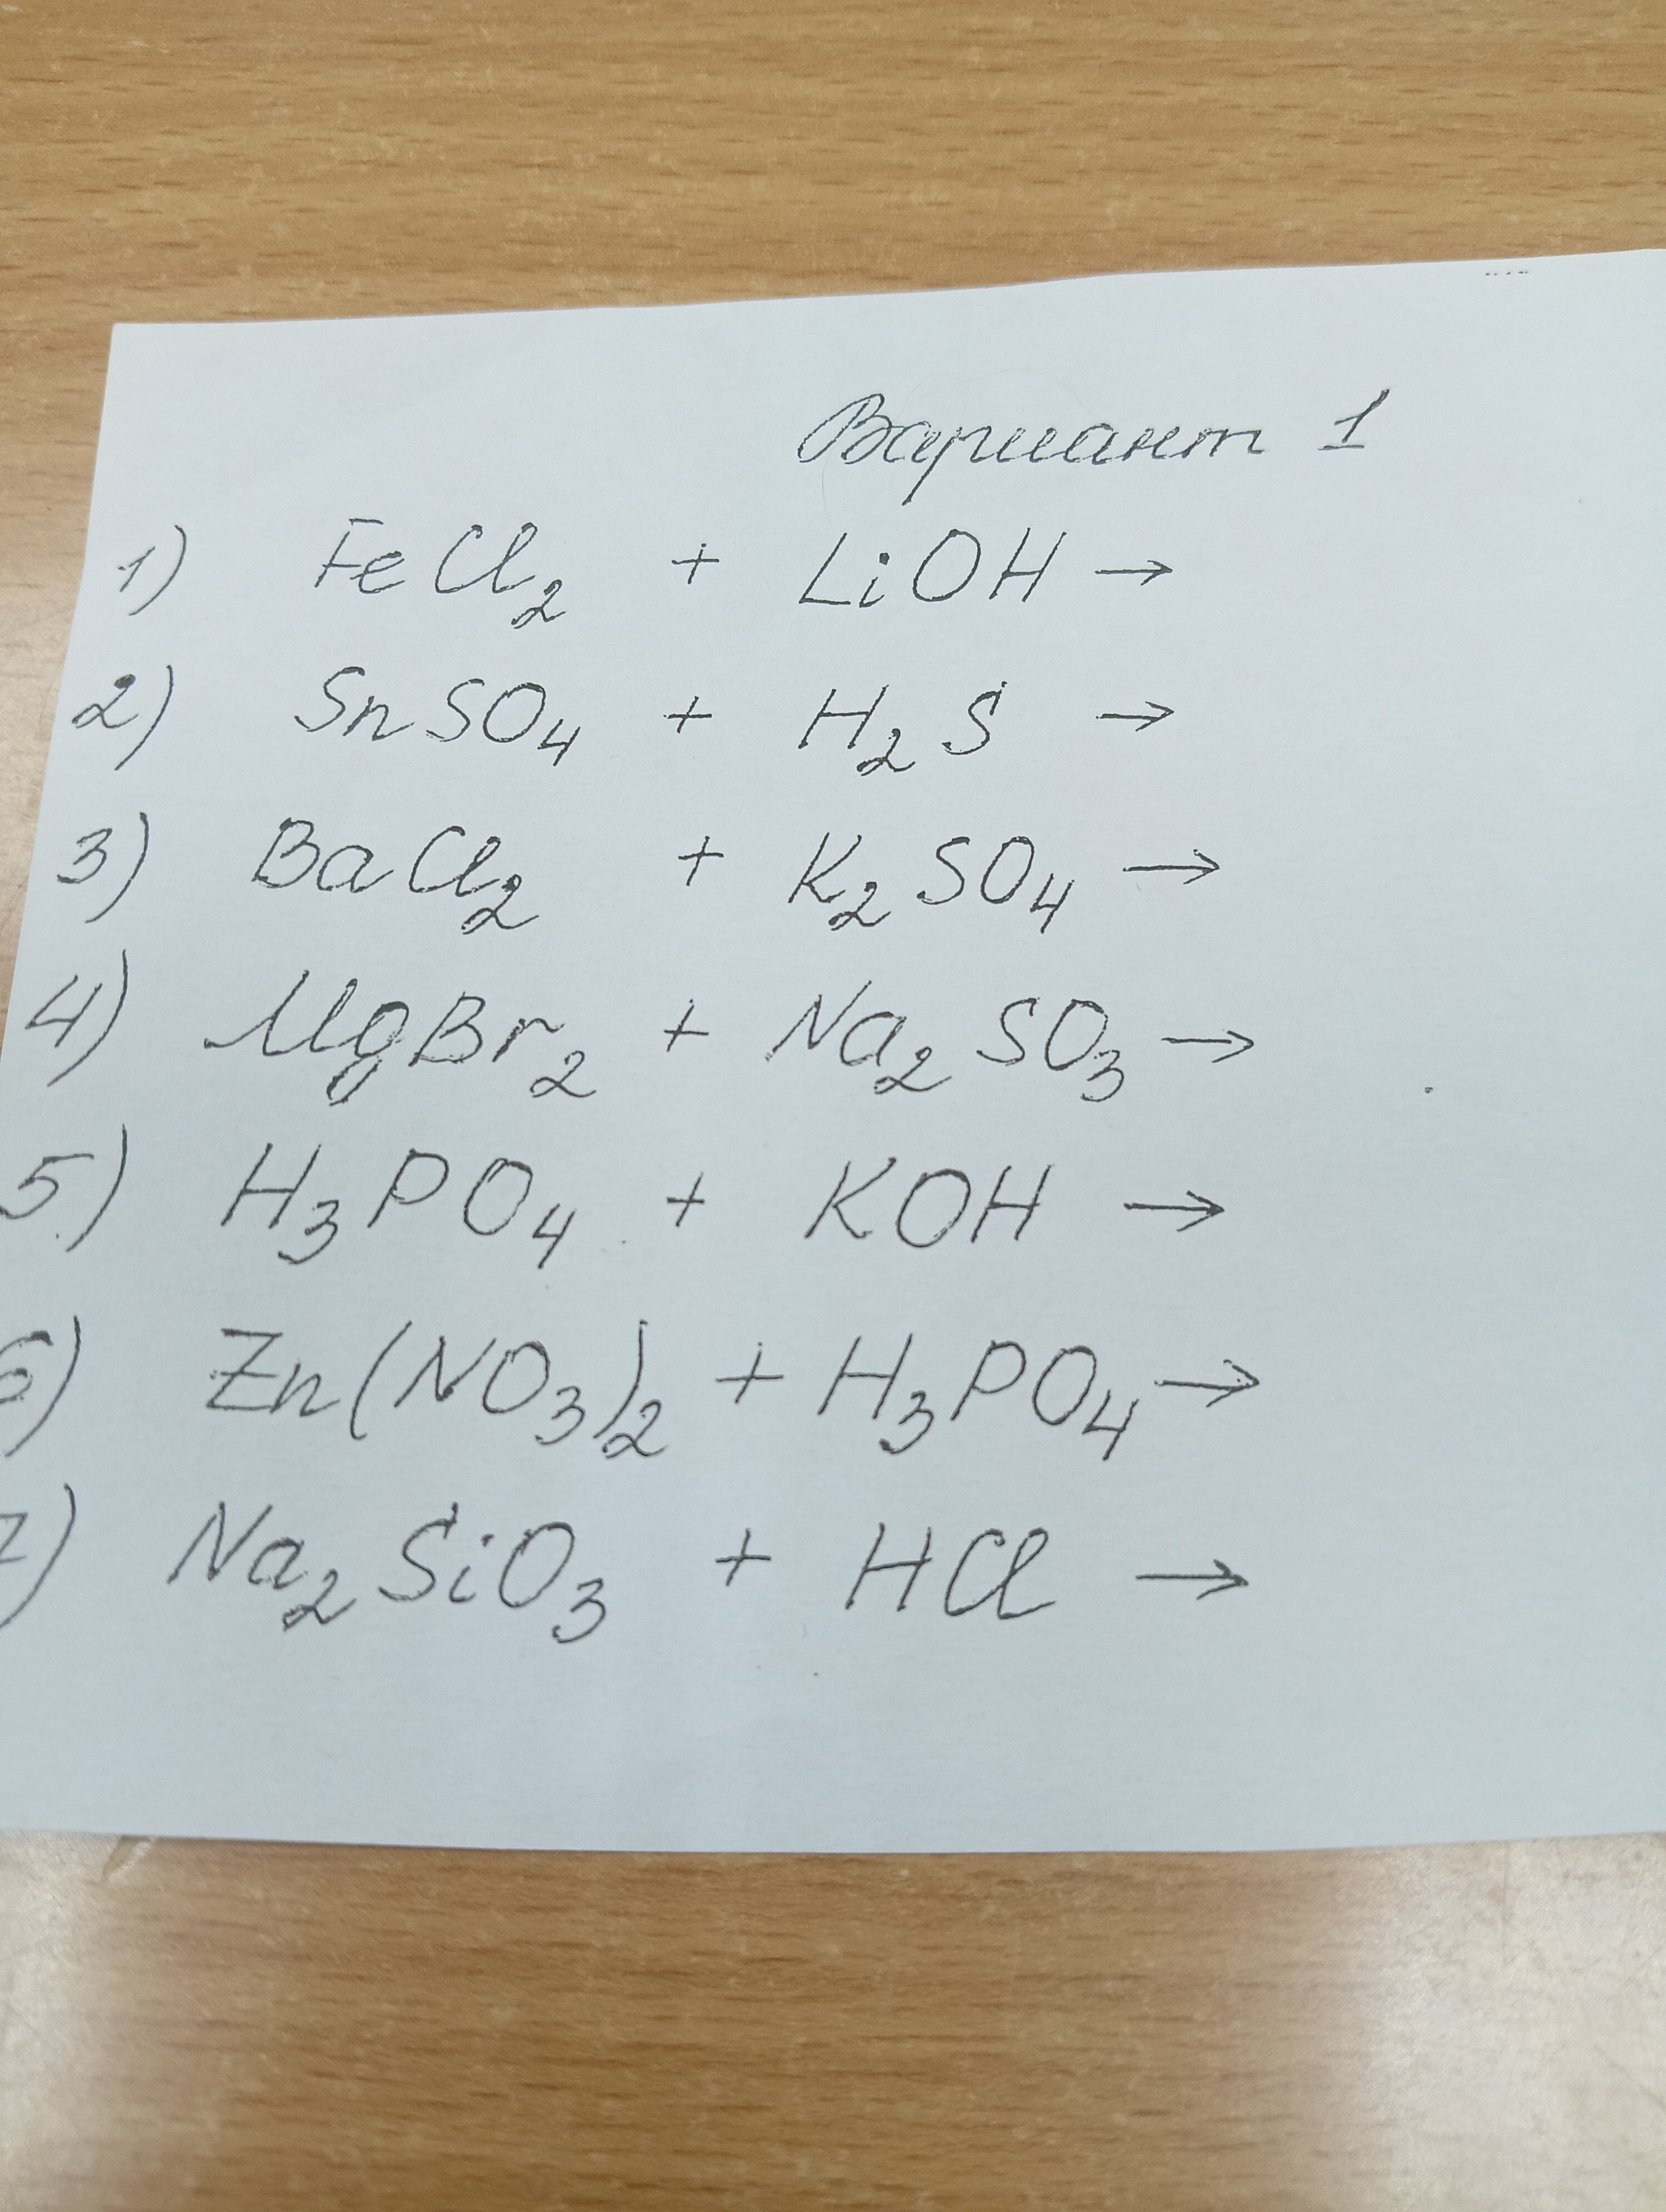 Вариант 1
1) FeCl₂ + LiOH →
2) SnSO₄ + H₂S →
3) BaCl₂ + K₂SO₄ →
4) MgBr₂ + Na₂SO₃ →
5) H₃PO₄ + KOH →
6) Zn(NO₃)₂ + H₃PO₄ →
7) Na₂SiO₃ + HCl →